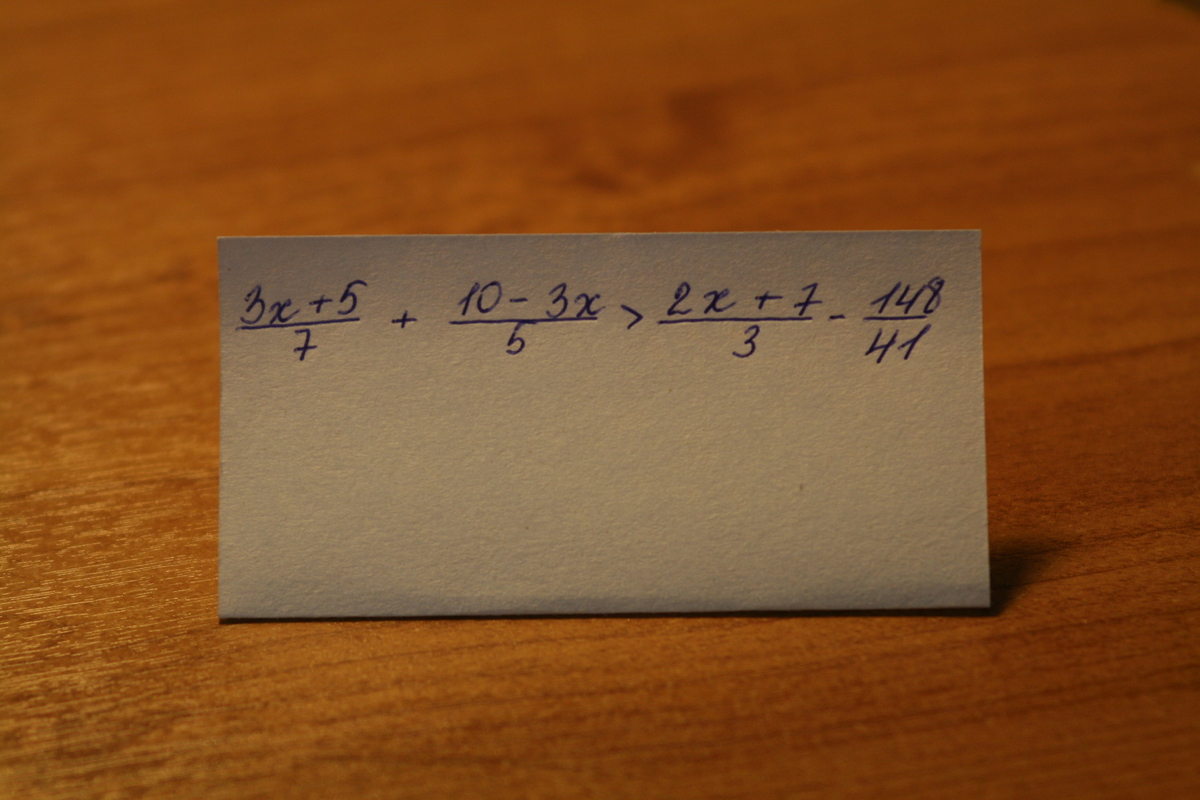 (3x+5)/7 + (10-3x)/5 > (2x+7)/3 - 148/41